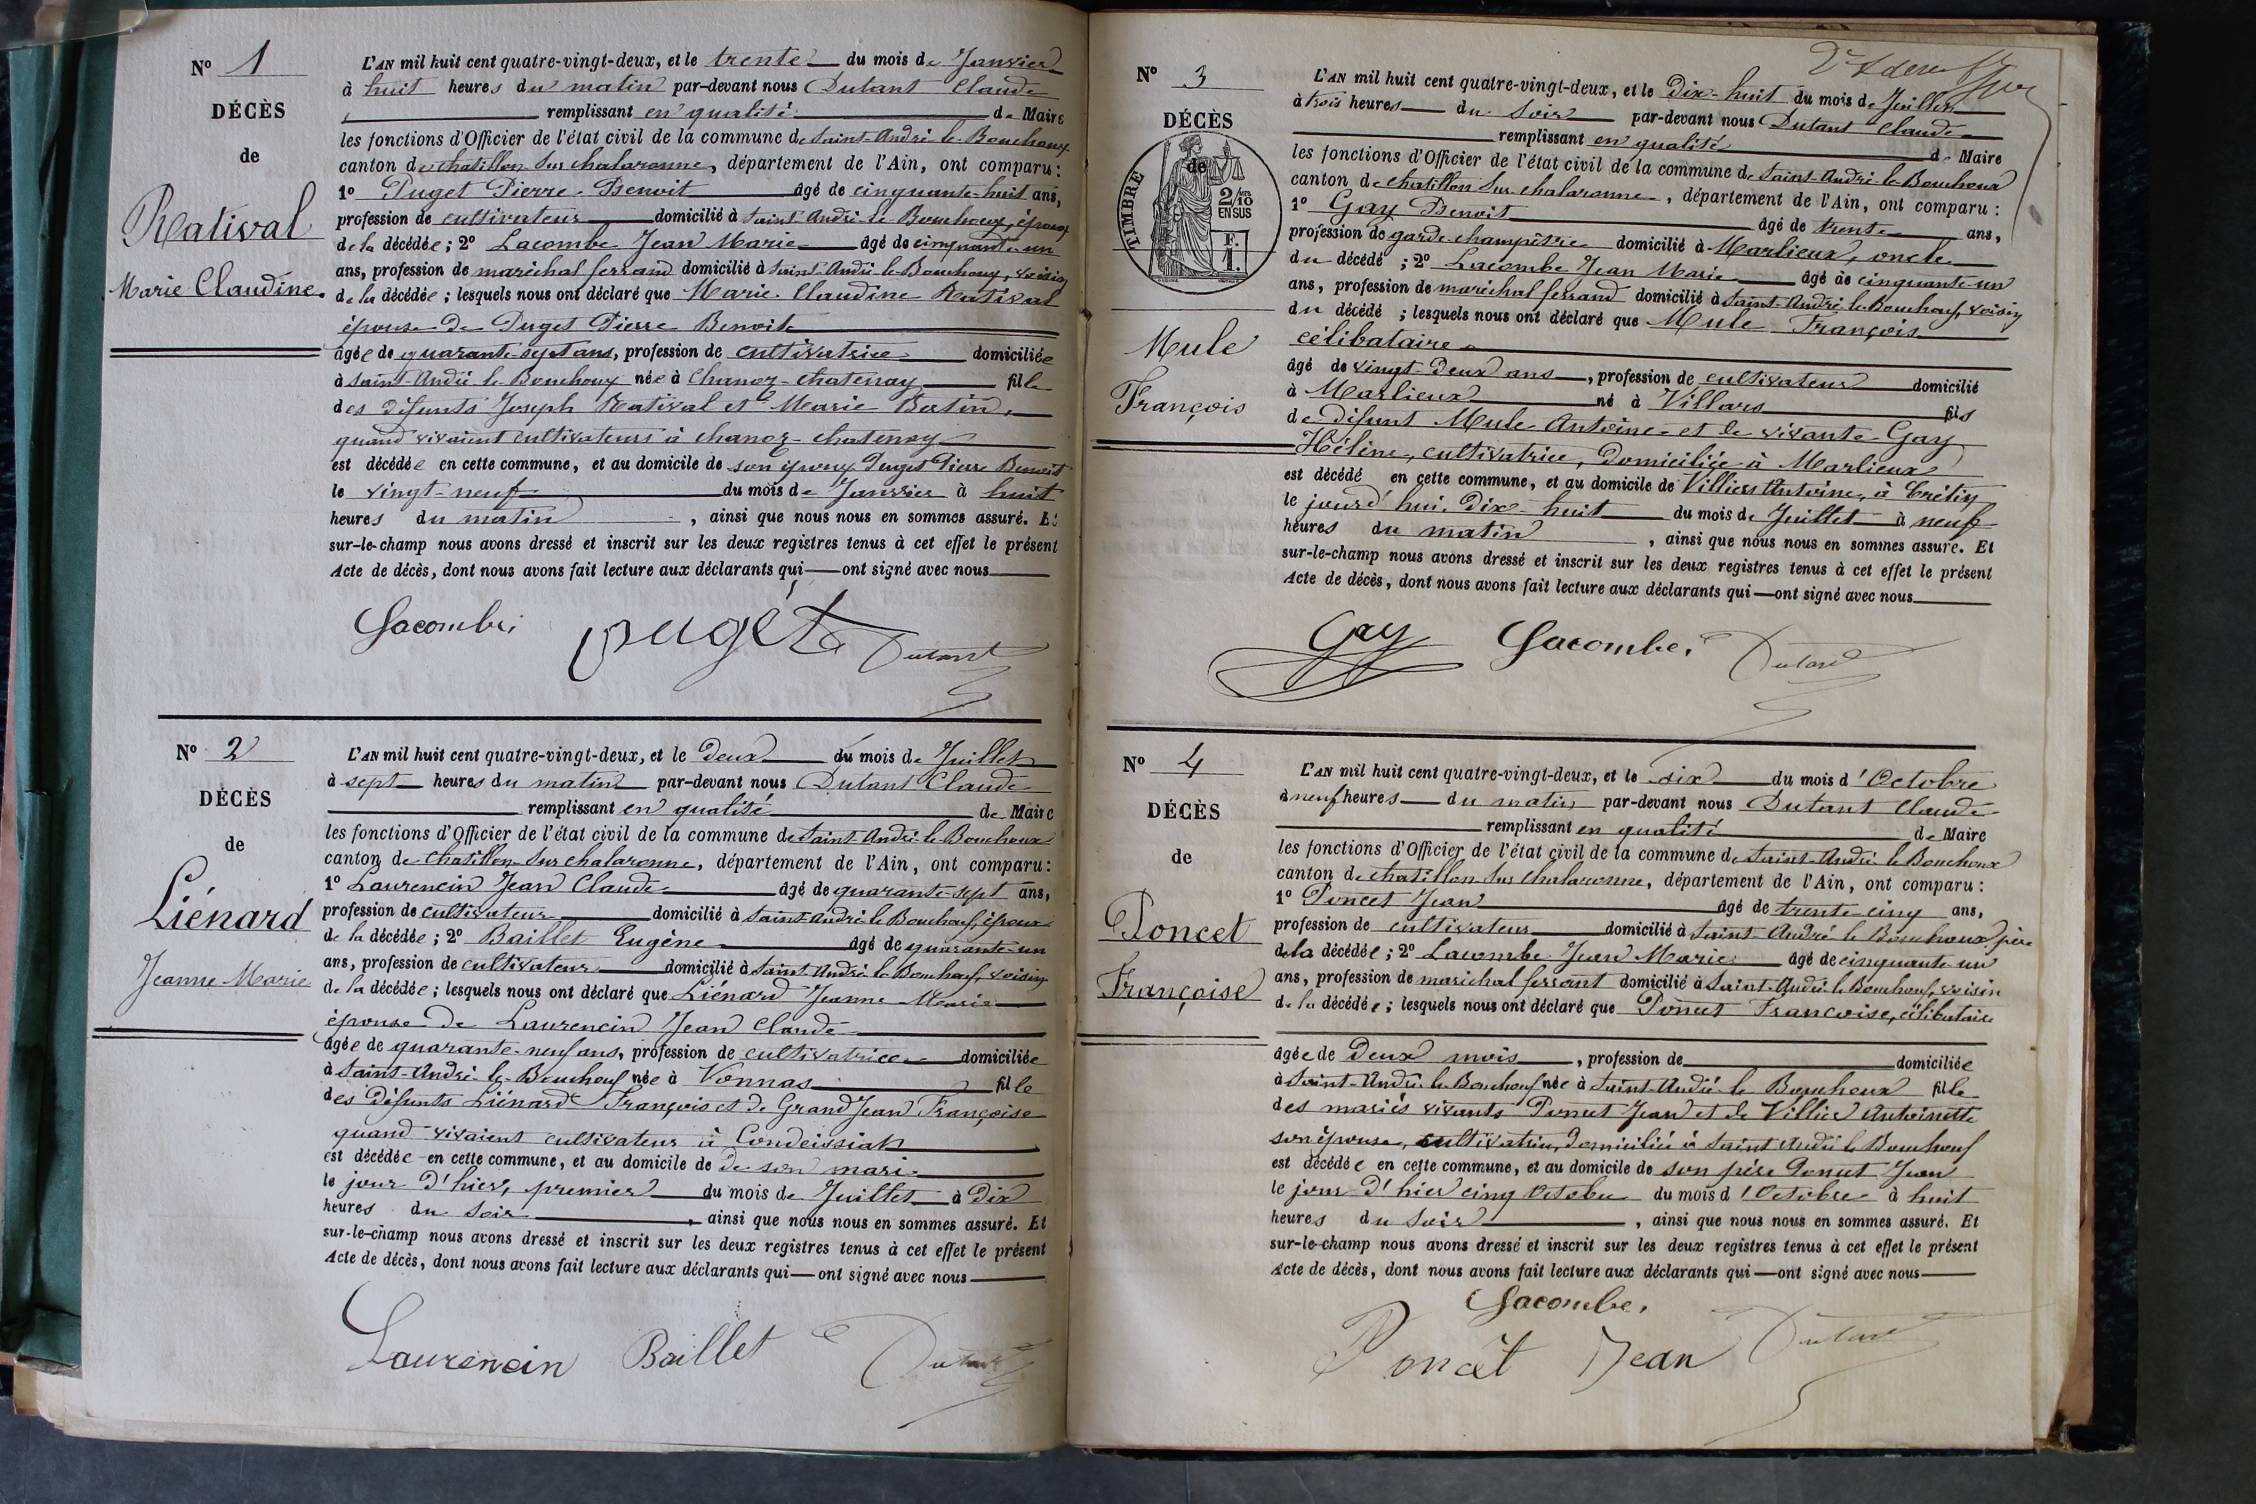 N° 1
DÉCÈS
de
Ratival
Marie Claudine.
L'AN mil huit cent quatre-vingt-deux, et le trente du mois de Janvier
à huit heures du matin par-devant nous Dutant Claude
remplissant en qualité de Maire
les fonctions d'Officier de l'état civil de la commune de Saint-André-le-Bouchoux
canton de chatillon sur chalaronne, département de l'Ain, ont comparu :
1° Puget Pierre-Benoit âgé de cinquante-huit ans,
profession de cultivateur domicilié à Saint André-le-Bouchoux, époux
de la décédée ; 2° Lacombe Jean Marie âgé de cinquante-un
ans, profession de maréchal ferrand domicilié à Saint-André-le-Bouchoux, voisin
de la décédée ; lesquels nous ont déclaré que Marie-Claudine Ratival
épouse de Puget Pierre Benoit
âgée de quarante-sept ans, profession de cultivatrice domiciliée
à Saint-André-le-Bouchoux née à Chanoz-chatenay fille
des défunts Joseph Ratival et Marie Bertin,
quand vivaient cultivateurs à chanoz-chatenay
est décédée en cette commune, et au domicile de son époux Puget Pierre Benoit
le vingt-neuf du mois de Janvier à huit
heures du matin, ainsi que nous nous en sommes assuré. Et
sur-le-champ nous avons dressé et inscrit sur les deux registres tenus à cet effet le présent
Acte de décès, dont nous avons fait lecture aux déclarants qui — ont signé avec nous
Lacombe, puget Dutant
N° 2
DÉCÈS
de
Liénard
Jeanne-Marie
L'AN mil huit cent quatre-vingt-deux, et le deux du mois de Juillet
à sept heures du matin par-devant nous Dutant Claude
remplissant en qualité de Maire
les fonctions d'Officier de l'état civil de la commune de Saint-André-le-Bouchoux
canton de chatillon-sur chalaronne, département de l'Ain, ont comparu :
1° Laurencin Jean Claude âgé de quarante-sept ans,
profession de cultivateur domicilié à Saint-André-le-Bouchoux, époux
de la décédée ; 2° Baillet Eugène âgé de quarante-un
ans, profession de cultivateur domicilié à Saint-André-le-Bouchoux, voisin
de la décédée ; lesquels nous ont déclaré que Liénard Jeanne-Marie
épouse de Laurencin Jean Claude
âgée de quarante-neuf ans, profession de cultivatrice domiciliée
à Saint-André-le-Bouchoux née à Vonnas fille
des défunts Liénard François et de GrandJean Françoise
quand vivaient cultivateurs à Condeissiat
est décédée en cette commune, et au domicile de de son mari
le jour d'hier, premier du mois de Juillet à dix
heures du soir, ainsi que nous nous en sommes assuré. Et
sur-le-champ nous avons dressé et inscrit sur les deux registres tenus à cet effet le présent
Acte de décès, dont nous avons fait lecture aux déclarants qui — ont signé avec nous
Laurencin Baillet Dutant
N° 3
DÉCÈS
de
TIMBRE
2/10 EN SUS
F. 1.
Mule
François
L'AN mil huit cent quatre-vingt-deux, et le dix-huit du mois de Juillet
à trois heures du soir par-devant nous Dutant Claude
remplissant en qualité de Maire
les fonctions d'Officier de l'état civil de la commune de Saint-André-le-Bouchoux
canton de chatillon sur-chalaronne, département de l'Ain, ont comparu :
1° Gay Benoit âgé de trente ans,
profession de garde-champêtre domicilié à Marlieux, oncle
du décédé ; 2° Lacombe Jean Marie âgé de cinquante-un
ans, profession de maréchal ferrand domicilié à Saint-André-le-Bouchoux, voisin
du décédé ; lesquels nous ont déclaré que Mule François
célibataire
âgé de vingt-deux ans, profession de cultivateur domicilié
à Marlieux né à Villars fils
de défunt Mule Antoine et de vivante Gay
Hélène, cultivatrice, domiciliée à Marlieux
est décédé en cette commune, et au domicile de Villiers Antoine, à
le jourd'hui dix-huit du mois de Juillet à neuf
heures du matin, ainsi que nous nous en sommes assuré. Et
sur-le-champ nous avons dressé et inscrit sur les deux registres tenus à cet effet le présent
Acte de décès, dont nous avons fait lecture aux déclarants qui — ont signé avec nous
Gay Lacombe. Dutant
N° 4
DÉCÈS
de
Poncet
Françoise
L'AN mil huit cent quatre-vingt-deux, et le six du mois d'Octobre
à neuf heures du matin par-devant nous Dutant Claude
remplissant en qualité de Maire
les fonctions d'Officier de l'état civil de la commune de Saint-André-le-Bouchoux
canton de chatillon sur chalaronne, département de l'Ain, ont comparu :
1° Poncet Jean âgé de trente-cinq ans,
profession de cultivateur domicilié à Saint-André le Bouchoux, père
de la décédée ; 2° Lacombe Jean Marie âgé de cinquante-un
ans, profession de maréchal ferrant domicilié à Saint-André-le-Bouchoux, voisin
de la décédée ; lesquels nous ont déclaré que Poncet Françoise, célibataire
âgée de deux mois, profession de domiciliée
à Saint-André-le-Bouchoux née à Saint-André-le Bouchoux fille
des mariés vivants Poncet Jean et de Villier Antoinette
son épouse, cultivatrice, domiciliée à Saint André le Bouchoux
est décédée en cette commune, et au domicile de son père Poncet Jean
le jour d'hier cinq Octobre du mois d'Octobre à huit
heures du soir, ainsi que nous nous en sommes assuré. Et
sur-le-champ nous avons dressé et inscrit sur les deux registres tenus à cet effet le présent
Acte de décès, dont nous avons fait lecture aux déclarants qui — ont signé avec nous
Lacombe.
Poncèt Jean Dutant